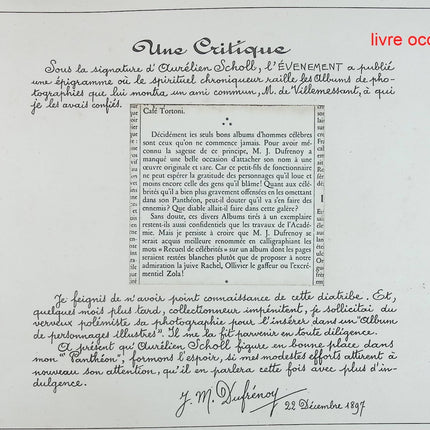 livre occ
Une Critique
Sous la signature d'Aurélien Scholl, l'ÉVENEMENT a publié
une épigramme où le spirituel chroniqueur raille les Albums de pho-
tographies que lui montra un ami commun, M. de Villemessant, à qui
je les avais confiés.
Café Tortoni.
Décidément les seuls bons albums d'hommes célèbres
sont ceux qu'on ne commence jamais. Pour avoir mé-
connu la sagesse de ce principe, M. J. Dufrenoy a
manqué une belle occasion d'attacher son nom à une
œuvre originale et rare. Car ce petit-fils de fonctionnaire
ne peut espérer la gratitude des personnages qu'il loue et
moins encore celle des gens qu'il blâme! Quant aux célé-
brités qu'il a bien plus gravement offensées en les omettant
dans son Panthéon, peut-il douter qu'il va s'en faire des
ennemis? Que diable allait-il faire dans cette galère?
Sans doute, ces divers Albums tirés à un exemplaire
restent-ils aussi confidentiels que les travaux de l'Acadé-
mie. Mais je persiste à croire que M. J. Dufrenoy se
serait acquis meilleure renommée en calligraphiant les
mots « Recueil de célébrités » sur un album dont les pages
seraient restées blanches plutôt que de proposer à notre
admiration la juive Rachel, Ollivier le gaffeur ou l'excré-
mentiel Zola!
Je feignis de n'avoir point connaissance de cette diatribe. Et,
quelques mois plus tard, collectionneur impénitent, je sollicitai du
verveux polémiste sa photographie pour l'insérer dans un "Album
de personnages illustres". Il me la fit parvenir en toute diligence.
A présent qu'Aurélien Scholl figure en bonne place dans
mon "Panthéon", formons l'espoir, si mes modestes efforts attirent à
nouveau son attention, qu'il en parlera cette fois avec plus d'in-
dulgence.
J. M. Dufrénoy
22 Décembre 1897